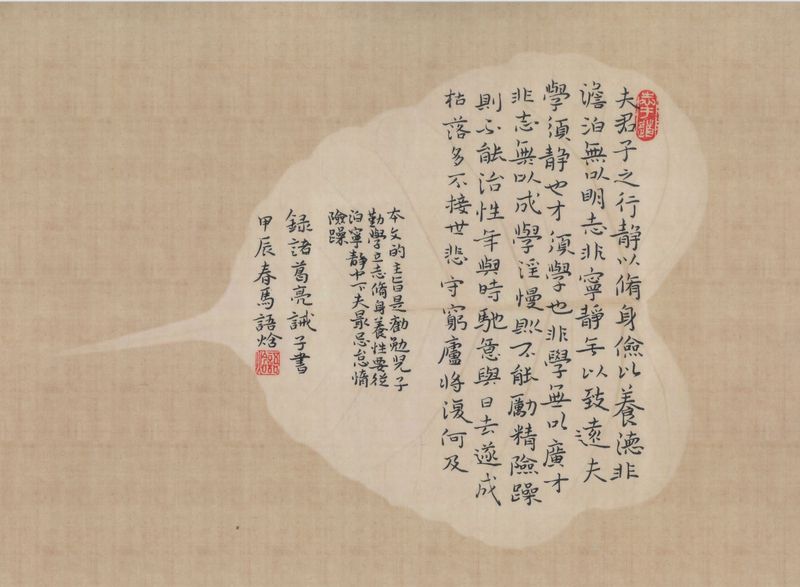 夫君子之行静以脩身儉以養德非
澹泊無以明志非寧靜無以致遠夫
學須静也才須學也非學無以廣才
非志無以成學淫慢則不能勵精險躁
則不能治性年與時馳意與日去遂成
枯落多不接世悲守窮廬將復何及
本文的主旨是勸勉兒子
勤學立志脩身養性要從
泊寧静中下夫最忌怠惰
險躁
録諸葛亮誡子書
甲辰春馬語焓